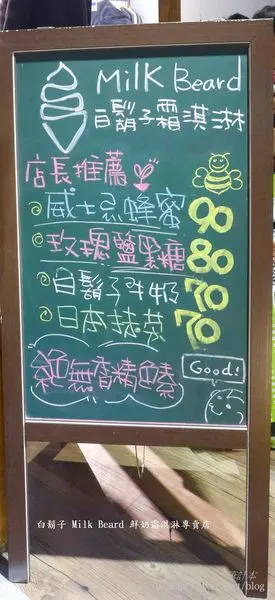 Milk Beard
白鬍子霜淇淋
店長推薦
威士忌蜂蜜 90
玫瑰鹽黑糖 80
白鬍子牛奶 70
日本抹茶 70
絕無香精色素
Good!
白鬍子 Milk Beard 鮮奶霜淇淋專賣店